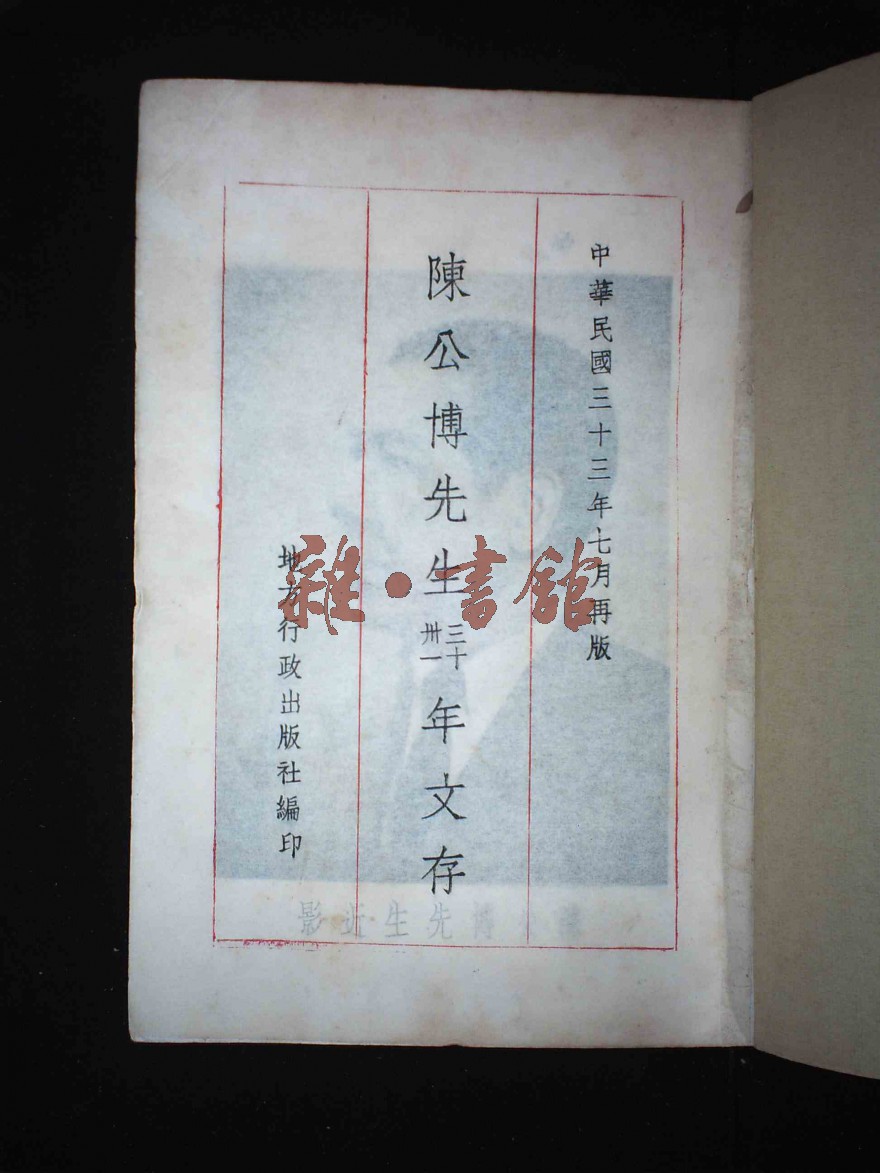 中華民國三十三年七月再版
陳公博先生三十卅一年文存
地方行政出版社編印
雜·書館
陳公博先生近影